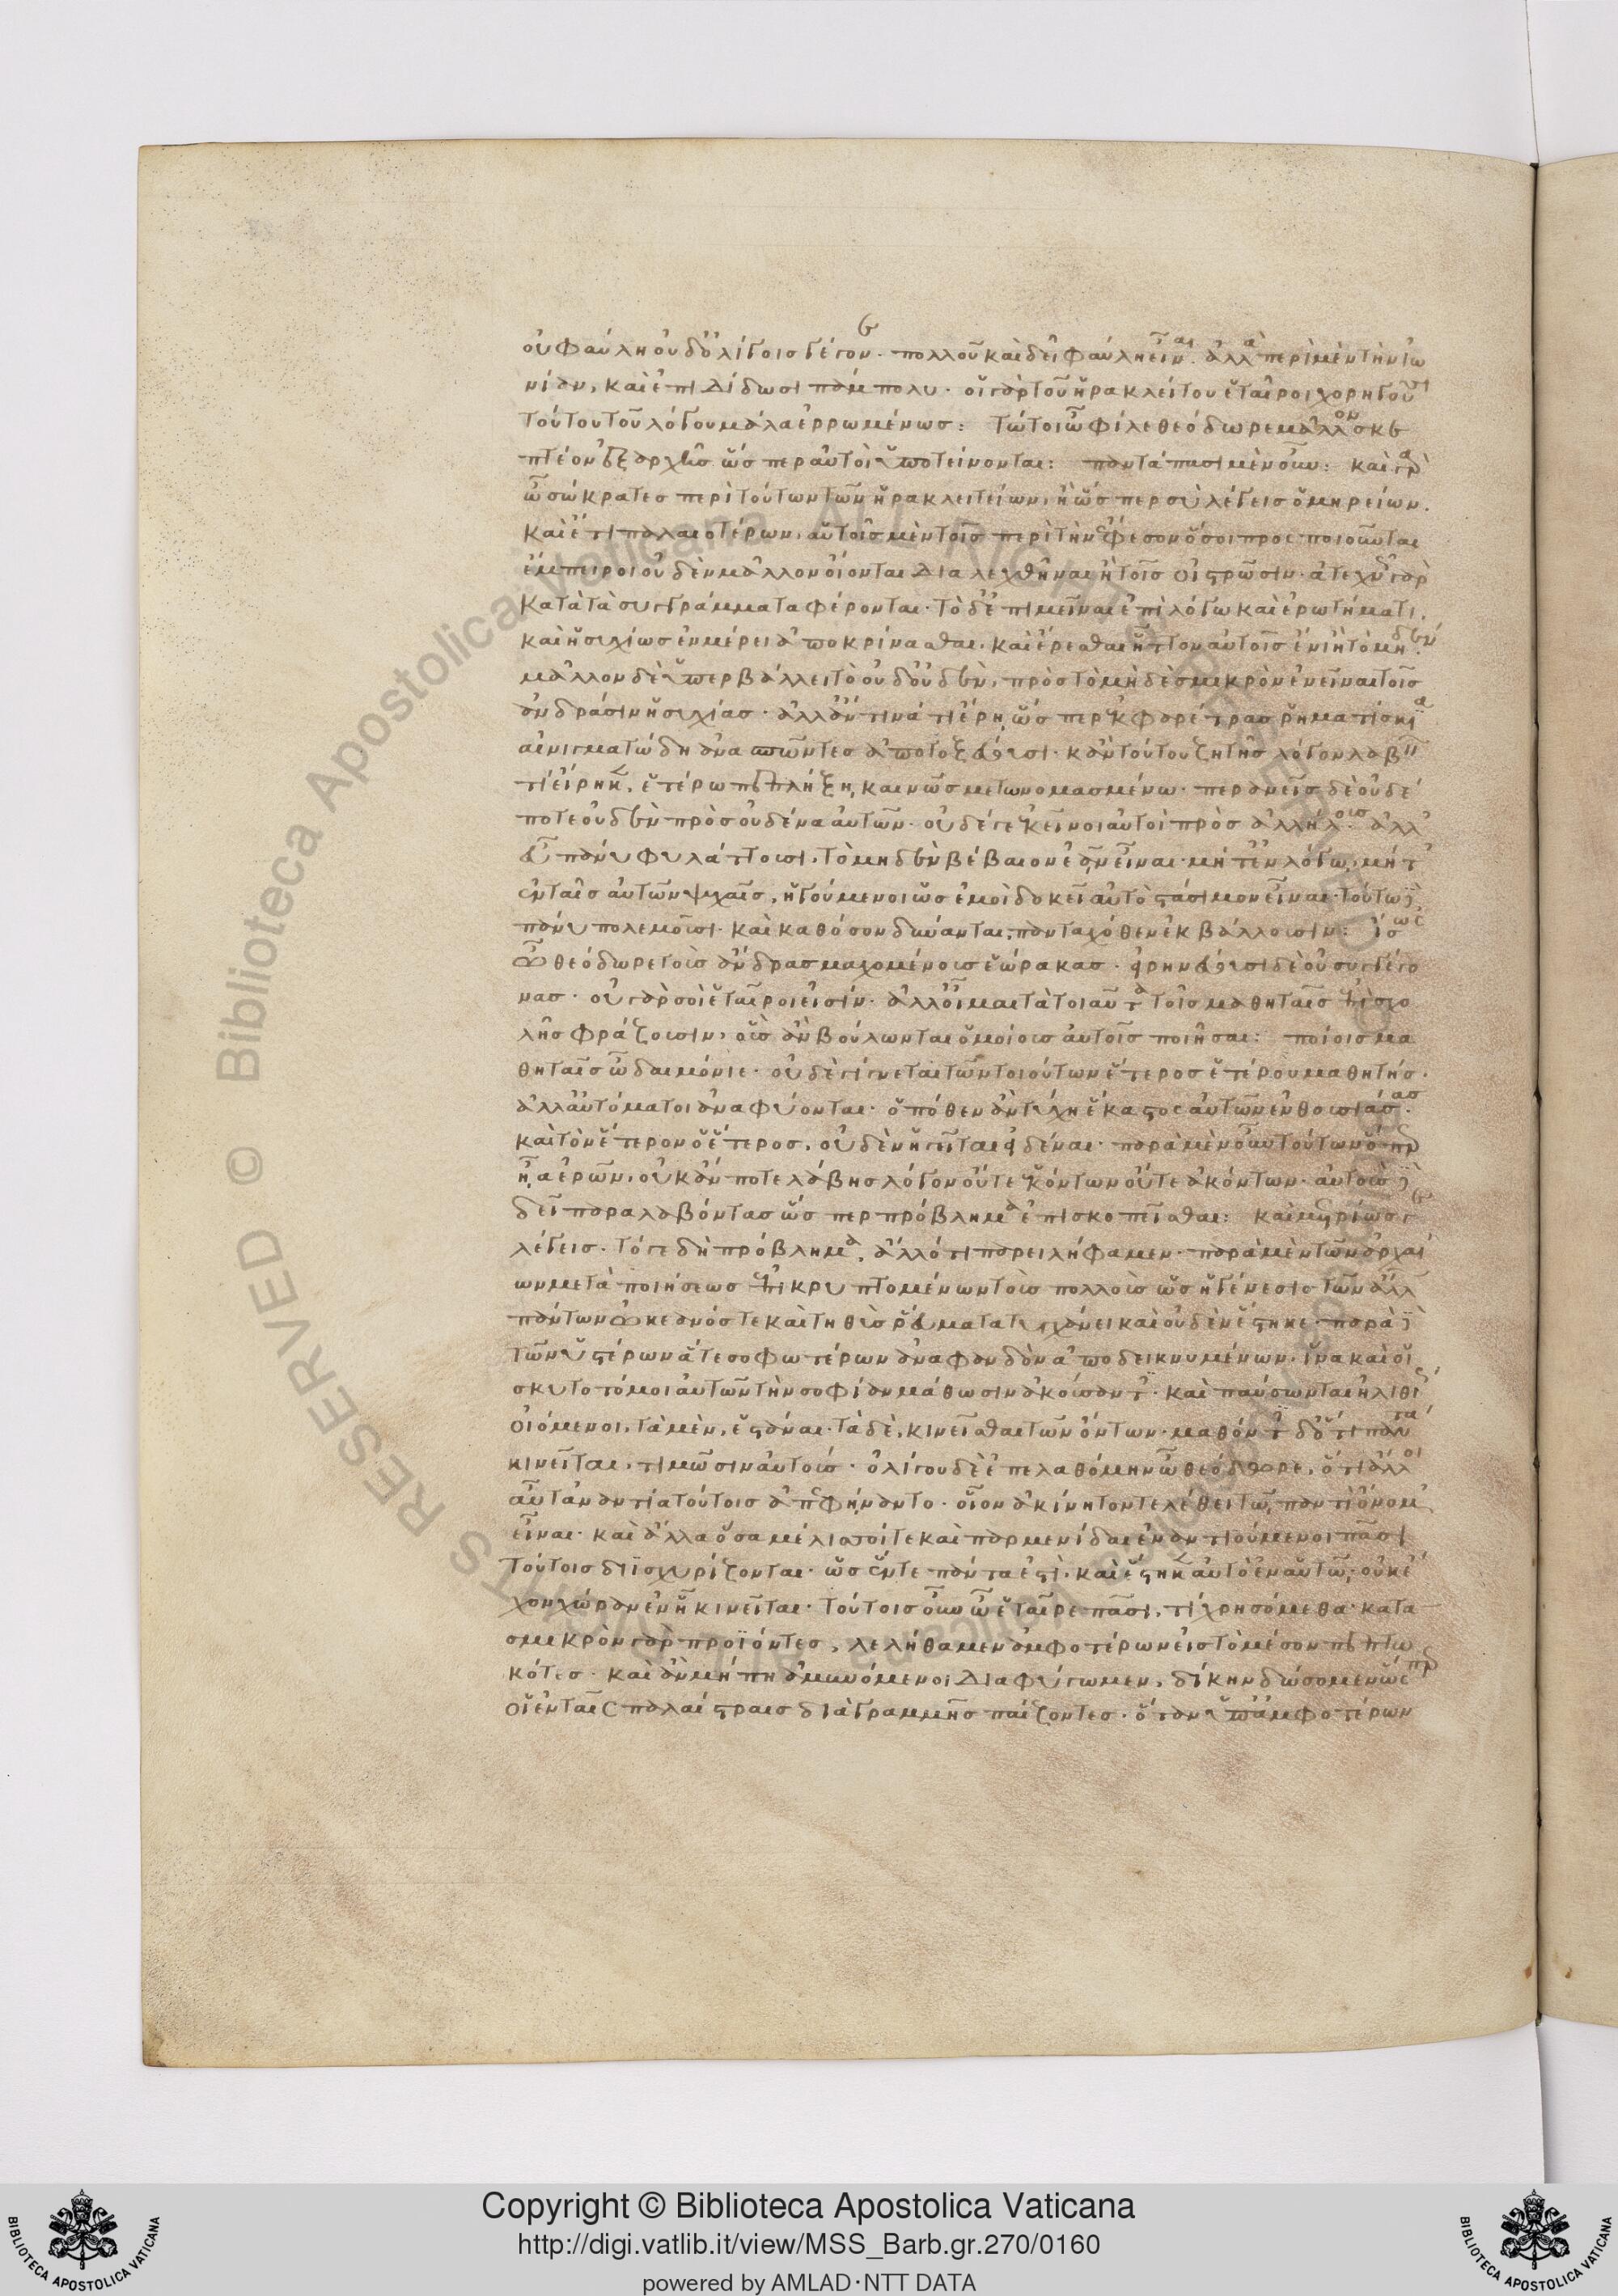 οὐ φαύλη οὐδ' ὀλίγοις γέγονεν. πολλοῦ καὶ δεῖ φαύλη εἶναι. ἀλλὰ περὶ μὲν τὴν ἰω
νίαν, καὶ ἐπιδίδωσι πάμπολυ. οἱ γὰρ τοῦ ἡρακλείτου ἑταῖροι χορηγοῦσι
τούτου τοῦ λόγου μάλα ἐρρωμένως: τῶ τοι ὦ φίλε θεόδωρε μᾶλλον σκε
πτέον ἐξ ἀρχῆς ὥσπερ αὐτοὶ ὑποτείνονται: παντάπασι μὲν οὖν: καὶ γὰρ
ὦ σώκρατες περὶ τούτων τῶν ἡρακλειτείων, ἢ ὥσπερ σὺ λέγεις ὁμηρείων.
καὶ ἔτι παλαιοτέρων, αὐτοῖς μὲν τοῖς περὶ τὴν ἔφεσον ὅσοι προσποιοῦνται
ἔμπειροι οὐδὲν μᾶλλον οἷόν τε διαλεχθῆναι ἢ τοῖς οἰστρῶσιν. ἀτεχνῶς γὰρ
κατὰ τὰ συγγράμματα φέρονται. τὸ δ' ἐπιμεῖναι ἐπὶ λόγω καὶ ἐρωτήματι,
καὶ ἡσυχίως ἐν μέρει ἀποκρίνασθαι, καὶ ἐρέσθαι ἧττον αὐτοῖς ἔνι ἢ τὸ μηδέν.
μᾶλλον δὲ ὑπερβάλλει τὸ οὐδ' οὐδὲν, πρὸς τὸ μηδὲ σμικρὸν ἐνεῖναι τοῖς
ἀνδράσιν ἡσυχίας. ἀλλ' ἄν τινά τι ἔρη, ὥσπερ ἐκ φαρέτρας ῥηματίσκια
αἰνιγματώδη ἀνασπῶντες ἀποτοξεύουσι. κἂν τούτου ζητῆς λόγον λαβεῖν
τί εἴρηκεν, ἑτέρω πεπλήξη, καινῶς μετωνομασμένω. περανεῖς δὲ οὐδέ
ποτε οὐδὲν πρὸς οὐδένα αὐτῶν. οὐδέ γε ἐκεῖνοι αὐτοὶ πρὸς ἀλλήλους. ἀλλ'
εὖ πάνυ φυλάττουσι, τὸ μηδὲν βέβαιον ἐᾶν εἶναι. μήτ' ἐν λόγω, μήτ'
ἐν ταῖς αὐτῶν ψυχαῖς, ἡγούμενοι ὡς ἐμοὶ δοκεῖ αὐτὸ στάσιμον εἶναι. τούτω δὲ
πάνυ πολεμοῦσι. καὶ καθόσον δύνανται, πανταχόθεν ἐκβάλλουσιν: ἴσως
ὦ θεόδωρε τοὺς ἄνδρας μαχομένους ἑώρακας. εἰρηνεύουσι δὲ οὐ συγγέγο
νας. οὐ γὰρ σοὶ ἑταῖροι εἰσίν. ἀλλ' οἶμαι τὰ τοιαῦτα τοῖς μαθηταῖς ἐπὶ σχο
λῆς φράζουσιν, οὓς ἂν βούλωνται ὁμοίους αὐτοῖς ποιῆσαι: ποίοις μα
θηταῖς ὦ δαιμόνιε. οὐδὲ γίγνεται τῶν τοιούτων ἕτερος ἑτέρου μαθητής.
ἀλλ' αὐτόματοι ἀναφύονται. ὁπόθεν ἂν τύχη ἕκαστος αὐτῶν ἐνθουσιάσας.
καὶ τὸν ἕτερον ὁ ἕτερος, οὐδὲν ἡγεῖται εἰδέναι. παρὰ μὲν οὖν τούτων ὅπερ
ἦα ἐρῶν, οὐκ ἄν ποτε λάβης λόγον οὔτε ἑκόντων οὔτε ἀκόντων. αὐτοὺς δὲ
δεῖ παραλαβόντας ὥσπερ πρόβλημα ἐπισκοπεῖσθαι: καὶ μετρίως γε
λέγεις. τό γε δὴ πρόβλημα, ἄλλό τι παρειλήφαμεν. παρὰ μὲν τῶν ἀρχαί
ων μετὰ ποιήσεως ἐπικρυπτομένων τοὺς πολλοὺς ὡς ἡ γένεσις τῶν ἄλλων
πάντων ὠκεανός τε καὶ τηθὺς ῥεύματα τυγχάνει καὶ οὐδὲν ἕστηκε. παρὰ δὲ
τῶν ὑστέρων ἅτε σοφωτέρων ἀναφανδὸν ἀποδεικνυμένων, ἵνα καὶ οἱ
σκυτοτόμοι αὐτῶν τὴν σοφίαν μάθωσιν ἀκούσαντες. καὶ παύσωνται ἠλιθίως
οἰόμενοι, τὰ μὲν, ἑστάναι. τὰ δὲ, κινεῖσθαι τῶν ὄντων. μαθόντες δ' ὅτι πάντα
κινεῖται, τιμῶσιν αὐτούς. ὀλίγου δὲ ἐπελαθόμην ὦ θεόδωρε, ὅτι ἄλλοι
αὖ τἀναντία τούτοις ἀπεφήναντο. οἷον ἀκίνητον τελέθει τῶ, παντὶ ὄνομ'
εἶναι. καὶ ἄλλα ὅσα μέλισσοί τε καὶ παρμενίδαι ἐναντιούμενοι πᾶσι
τούτοις διϊσχυρίζονται. ὡς ἕν τε πάντα ἐστὶ. καὶ ἕστηκεν αὐτὸ ἐν αὑτῶ, οὐκ ἔ
χον χώραν ἐν ἧ κινεῖται. τούτοις οὖν ὦ ἑταῖρε πᾶσι, τί χρησόμεθα. κατα
σμικρὸν γὰρ προϊόντες, λελήθαμεν ἀμφοτέρων εἰς τὸ μέσον πεπτω
κότες. καὶ ἂν μή πη ἀμυνόμενοι διαφύγωμεν, δίκην δώσομεν ὥσπερ
οἱ ἐν ταῖς παλαίστραις διὰ γραμμῆς παίζοντες. ὅταν ὑπ' ἀμφοτέρων
Copyright © Biblioteca Apostolica Vaticana
http://digi.vatlib.it/view/MSS_Barb.gr.270/0160
powered by AMLAD·NTT DATA